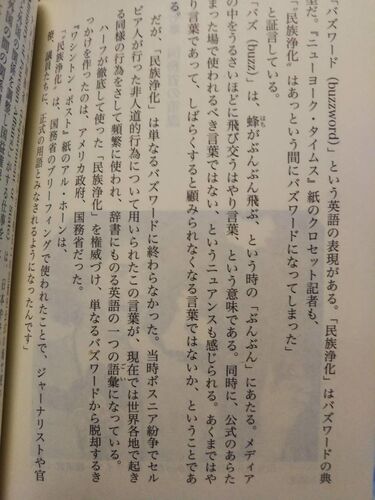 「バズワード(buzzword)」という英語の表現がある。「民族浄化」はバズワードの典
型だ。『ニューヨーク・タイムス』紙のクロセット記者も、
「『民族浄化』はあっという間にバズワードになってしまった」
と証言している。
「バズ(buzz)」は、蜂がぶんぶん飛ぶ、という時の「ぶんぶん」にあたる。メディア
の中をうるさいほどに飛び交うはやり言葉、という意味である。同時に、公式のあらた
まった場で使われるべき言葉ではない、というニュアンスも感じられる。あくまではや
り言葉であって、しばらくすると顧みられなくなる言葉ではないか、ということであ
る。
だが、「民族浄化」は単なるバズワードに終わらなかった。当時ボスニア紛争でセル
ビア人が行った非人道的行為について用いられたこの言葉が、現在では世界各地で起き
る同様の行為をさして頻繁に使われ、辞書にものる英語の一つの語彙になっている。
ハーフが徹底して使った「民族浄化」を権威づけ、単なるバズワードから脱却するき
っかけを作ったのは、アメリカ政府、国務省だった。
『ワシントン・ポスト』紙のアル・ホーンは、
「『民族浄化』は、国務省のブリーフィングで使われたことで、ジャーナリストや官
僚、議員たちに、正式の用語とみなされるようになったんです」